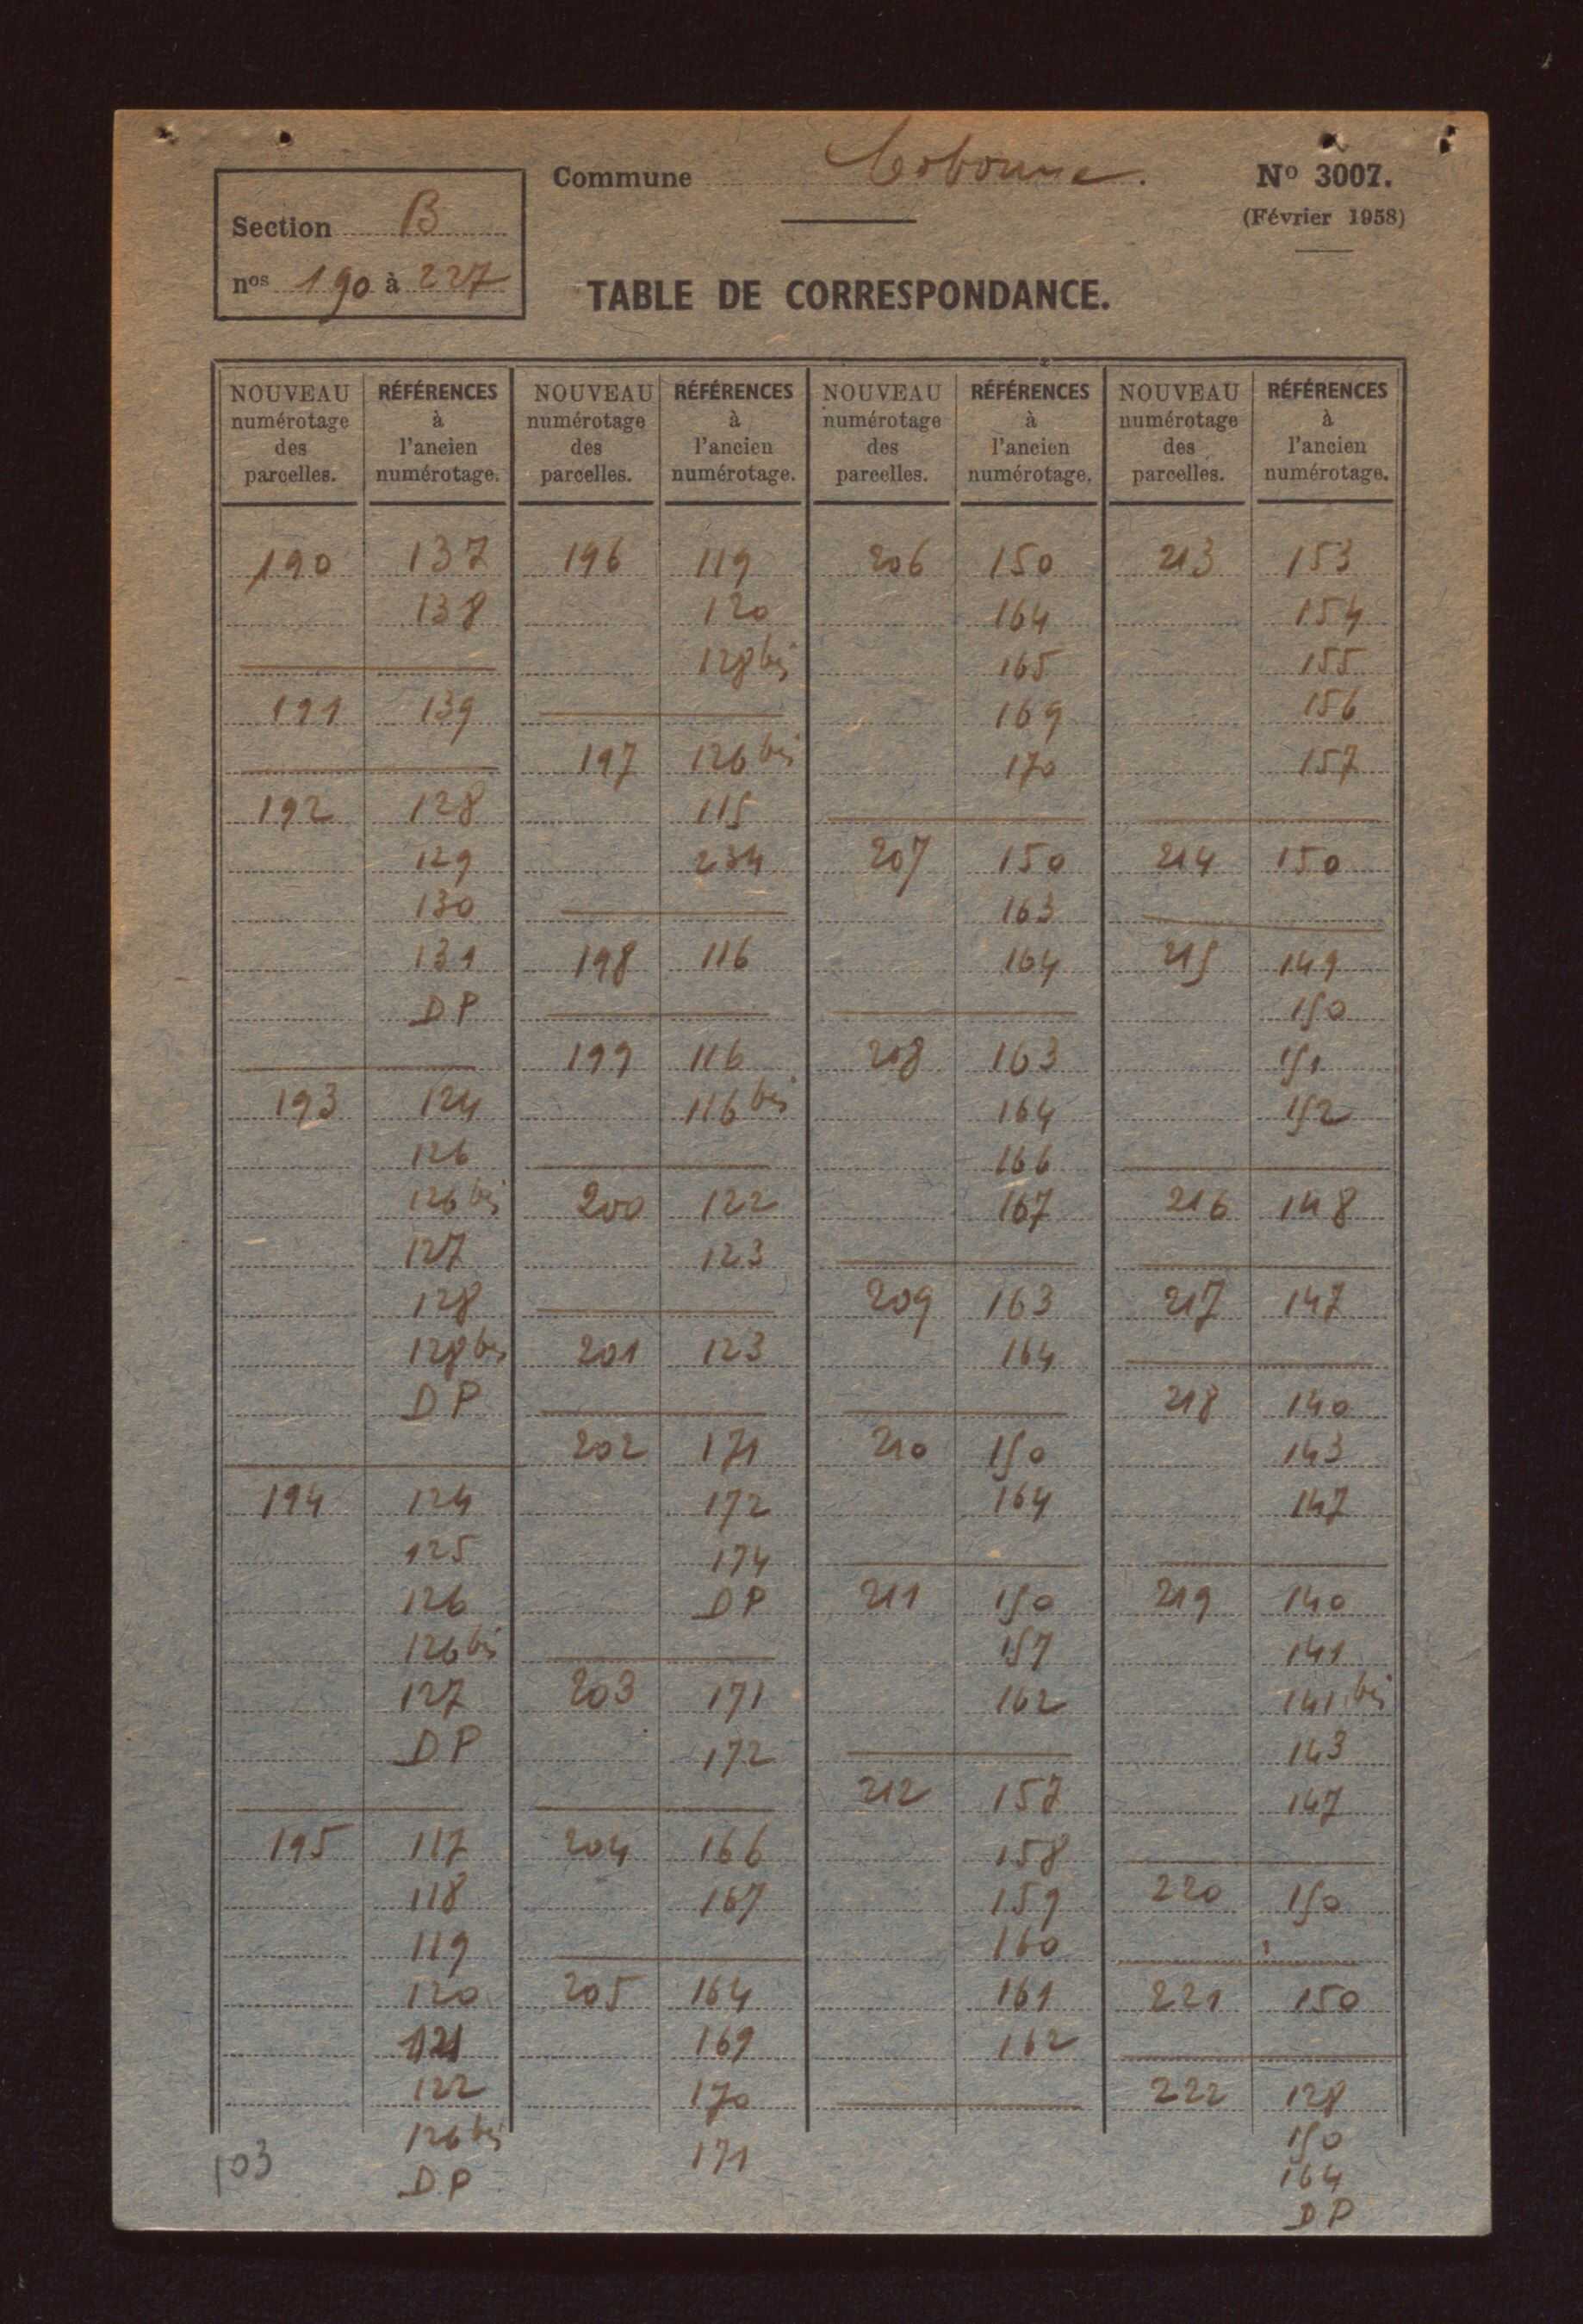 Commune Cobonne.
N° 3007.
(Février 1958)
Section B
nos 190 à 227
TABLE DE CORRESPONDANCE.
NOUVEAU numérotage des parcelles. RÉFÉRENCES à l'ancien numérotage. NOUVEAU numérotage des parcelles. RÉFÉRENCES à l'ancien numérotage. NOUVEAU numérotage des parcelles. RÉFÉRENCES à l'ancien numérotage. NOUVEAU numérotage des parcelles. RÉFÉRENCES à l'ancien numérotage.
190 137
138
191 139
192 128
129
130
131
DP
193 124
126
126 bis
127
128
128 bis
DP
194 124
125
126
126 bis
127
DP
195 117
118
119
120
121
122
126 bis
DP
196 119
120
128 bis
197 126 bis
115
234
198 116
199 116
116 bis
200 122
123
201 123
202 171
172
174
DP
203 171
172
204 166
167
205 164
169
170
171
206 150
164
165
169
170
207 150
163
164
208 163
164
166
167
209 163
164
210 150
164
211 150
157
162
212 157
158
159
160
161
162
213 153
154
155
156
157
214 150
215 149
150
151
152
216 148
217 147
218 140
143
147
219 140
141
141 bis
143
147
220 150
221 150
222 128
150
164
DP
103